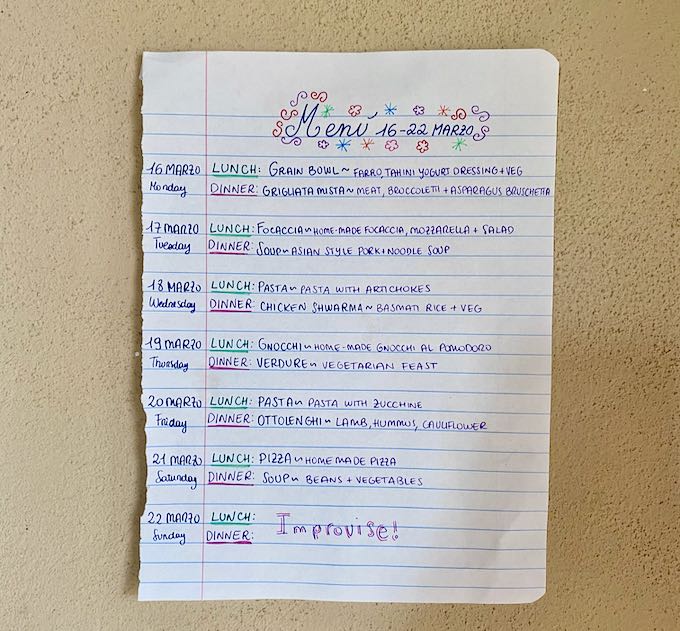 Menú 16-22 MARZO
16 MARZO LUNCH: GRAIN BOWL ~ FARRO, TAHINI YOGURT DRESSING + VEG
Monday DINNER: GRIGLIATA MISTA ~ MEAT, BROCCOLETTI + ASPARAGUS BRUSCHETTA
17 MARZO LUNCH: FOCACCIA ~ HOME-MADE FOCACCIA, MOZZARELLA + SALAD
Tuesday DINNER: SOUP ~ ASIAN STYLE PORK + NOODLE SOUP
18 MARZO LUNCH: PASTA ~ PASTA WITH ARTICHOKES
Wednesday DINNER: CHICKEN SHWARMA ~ BASMATI RICE + VEG
19 MARZO LUNCH: GNOCCHI ~ HOME-MADE GNOCCHI AL POMODORO
Thursday DINNER: VERDURE ~ VEGETARIAN FEAST
20 MARZO LUNCH: PASTA ~ PASTA WITH ZUCCHINE
Friday DINNER: OTTOLENGHI ~ LAMB, HUMMUS, CAULIFLOWER
21 MARZO LUNCH: PIZZA ~ HOME MADE PIZZA
Saturday DINNER: SOUP ~ BEANS + VEGETABLES
22 MARZO LUNCH:
Sunday DINNER: Improvise!